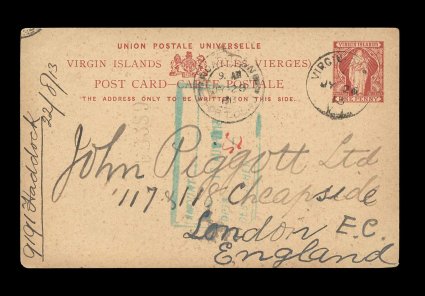 UNION POSTALE UNIVERSELLE
VIRGIN ISLANDS (ILES VIERGES)
POST CARD-CARTE POSTALE
THE ADDRESS ONLY TO BE WRITTEN ON THIS SIDE.
VIRGIN ISLANDS
ONE PENNY
VIRGI
JY 26
9 AM
John Piggott Ltd
117 & 118 Cheapside
London E.C.
England
9191 Haddock
22/8/13